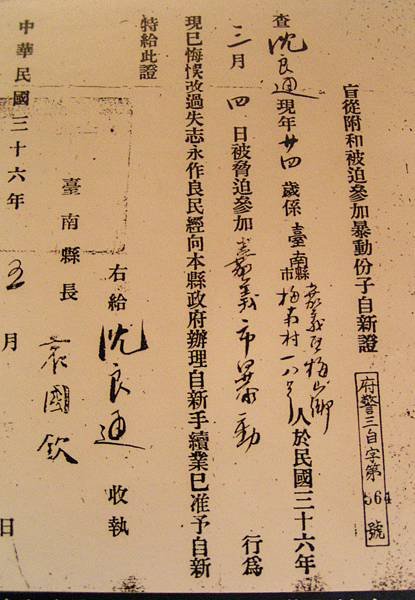 盲從附和被迫參加暴動份子自新證
府警三自字第564號
查沈良通現年廿四歲係臺南縣市嘉義區梅山鄉梅南村一八號人於民國三十六年
三月四日被脅迫參加嘉義市暴動行為
現已悔悮改過失志永作良民經向本縣政府辦理自新手續業已准予自新
特給此證
右給沈良通收執
臺南縣長袁國欽
中華民國三十六年五月日